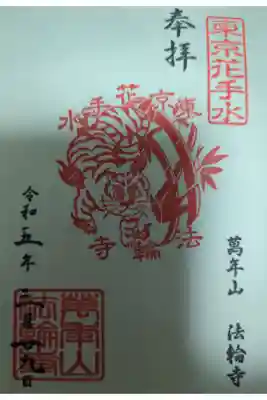 東京花手水
奉拝
東京花手水
法輪寺
萬年山 法輪寺
令和五年三月廿九日